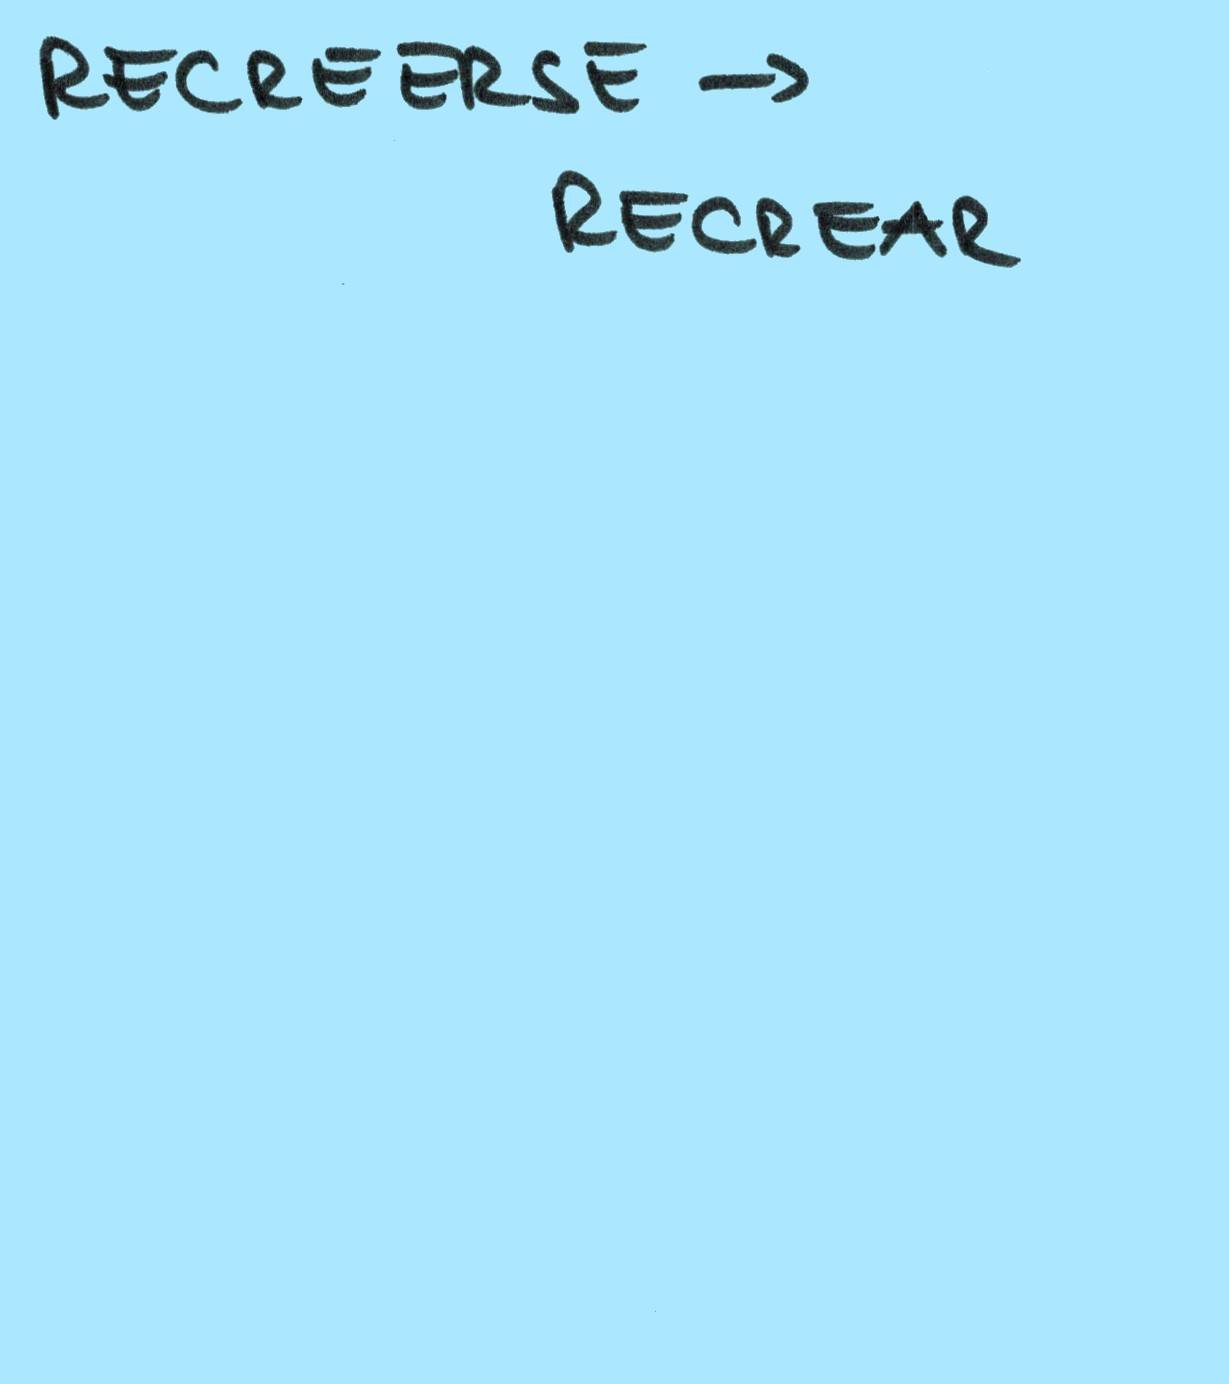 RECREERSE →
RECREAR